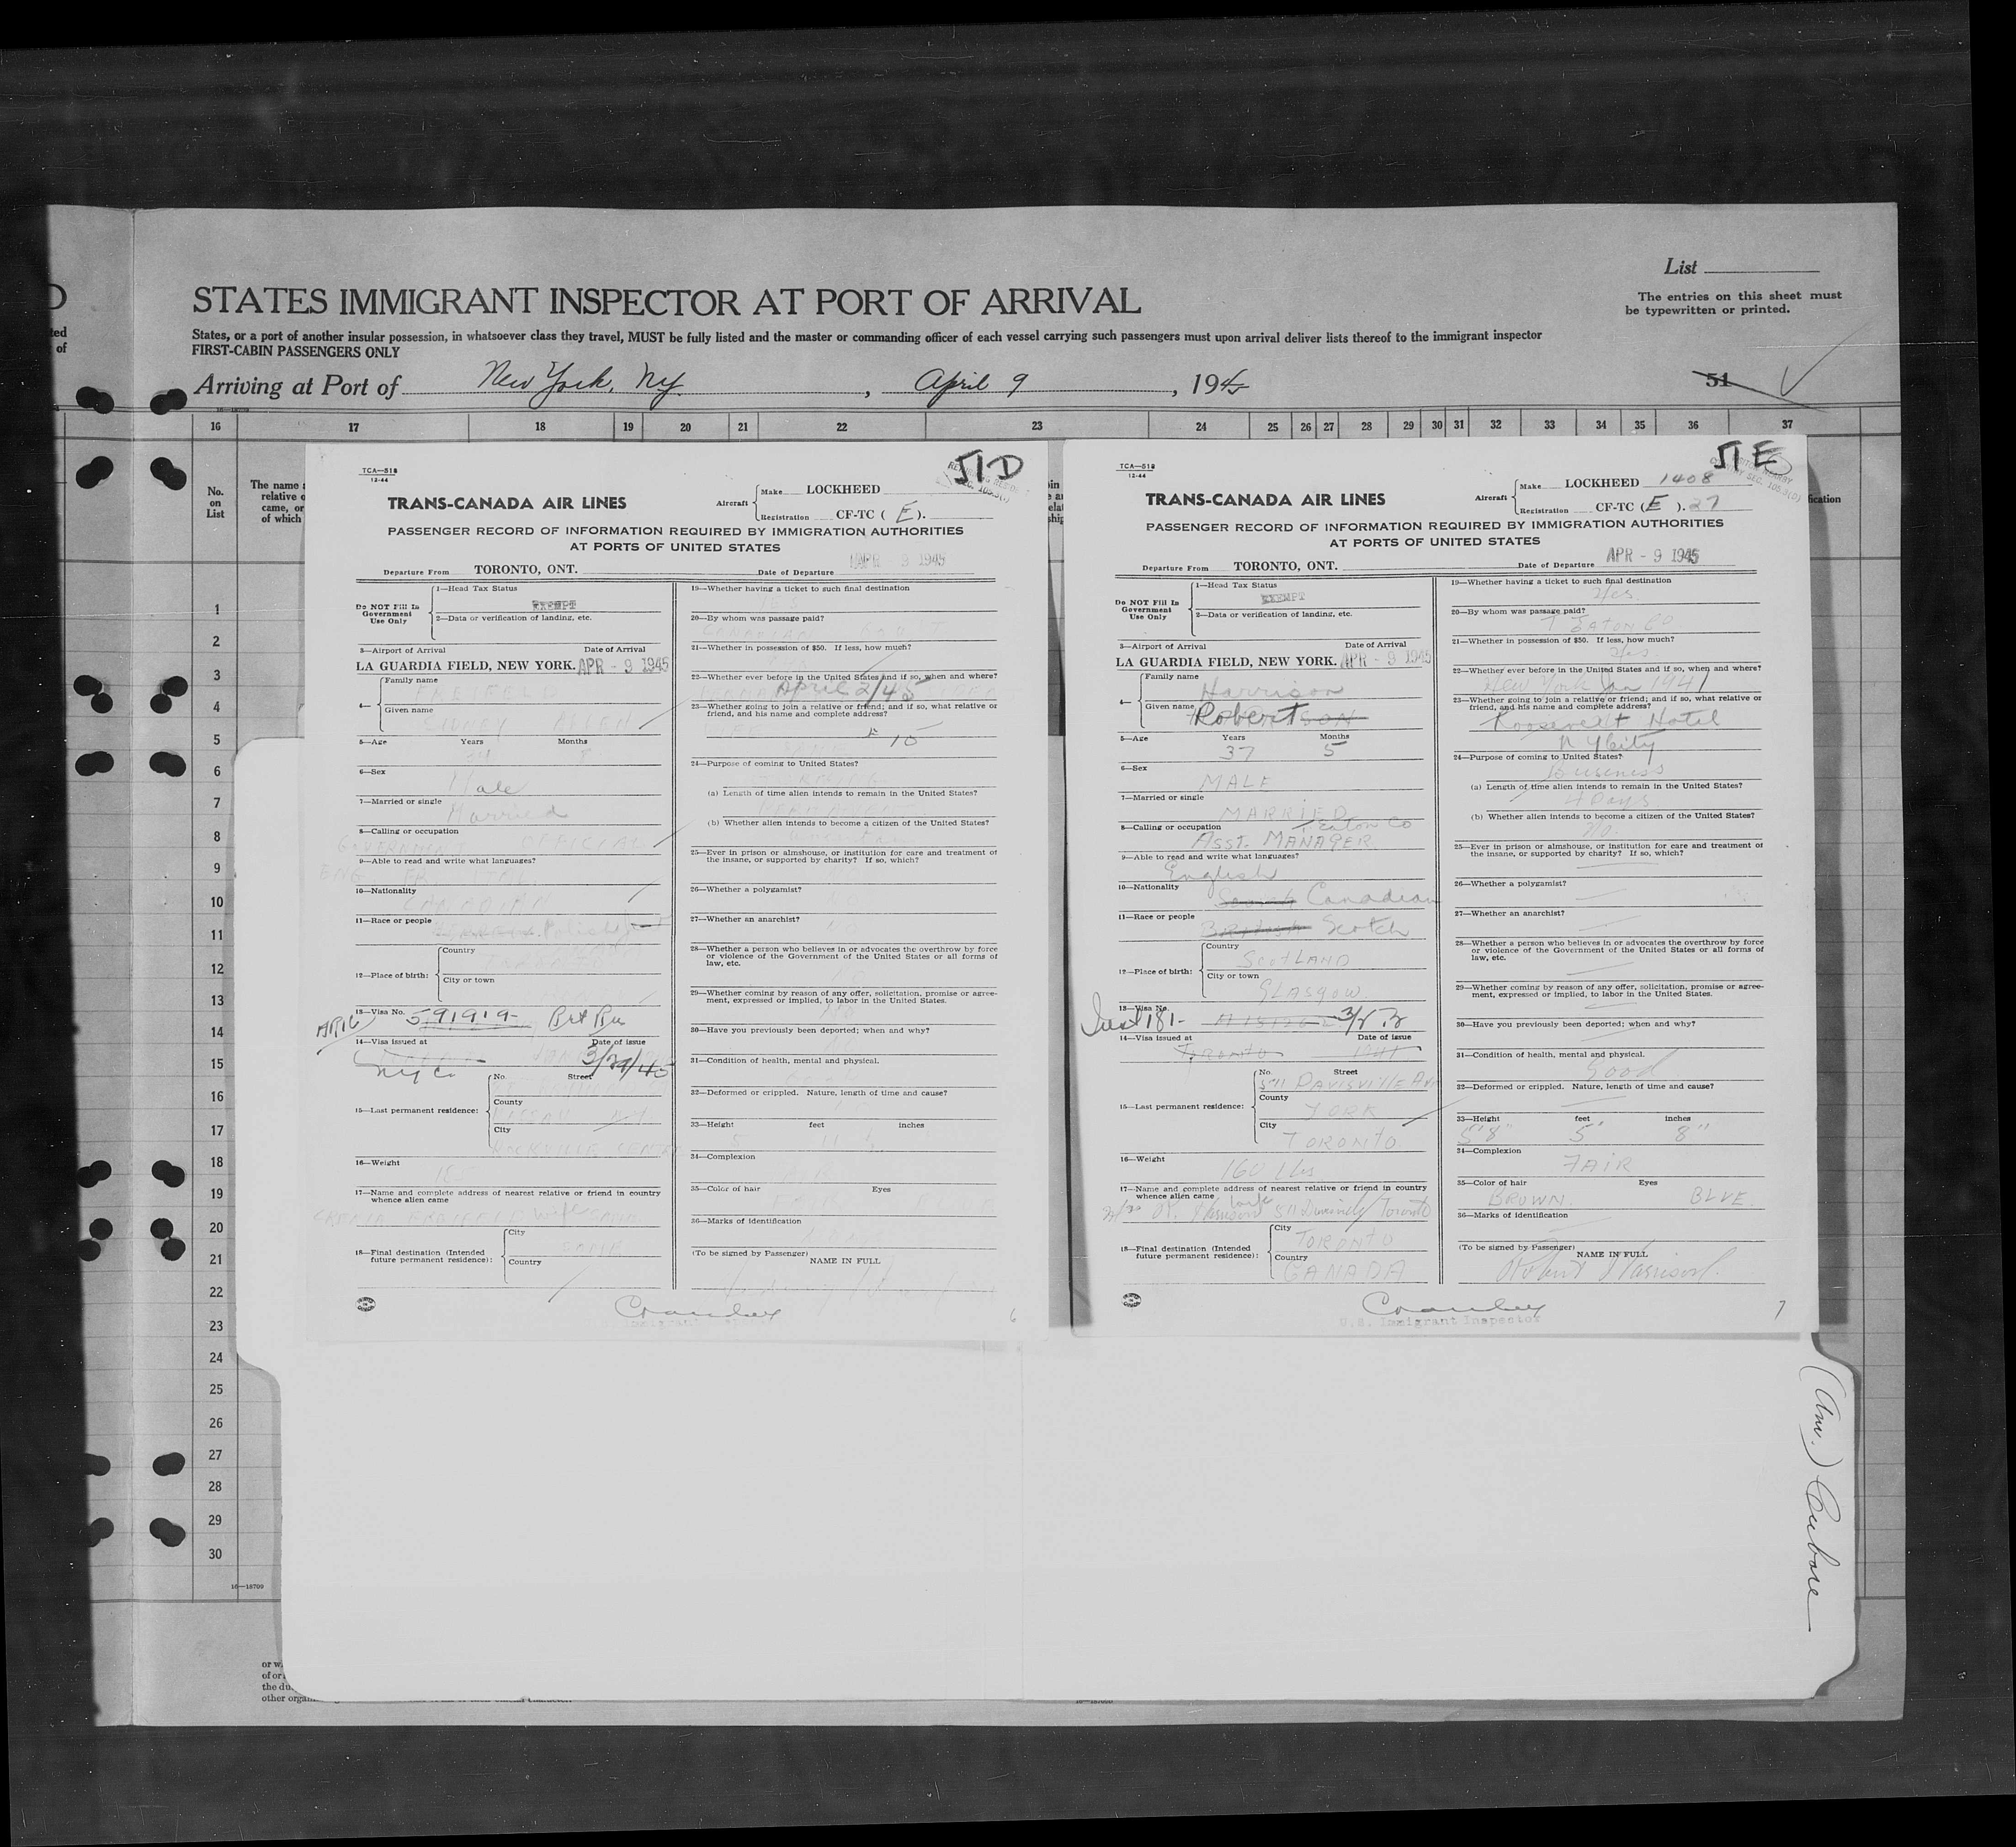 List
The entries on this sheet must
be typewritten or printed.
STATES IMMIGRANT INSPECTOR AT PORT OF ARRIVAL
States, or a port of another insular possession, in whatsoever class they travel, MUST be fully listed and the master or commanding officer of each vessel carrying such passengers must upon arrival deliver lists thereof to the immigrant inspector
FIRST-CABIN PASSENGERS ONLY
Arriving at Port of New York, NY. , April 9 , 1945
51
16 17 18 19 20 21 22 23 24 25 26 27 28 29 30 31 32 33 34 35 36 37
No.
on
List
The name
relative o
came, or
of which
1
2
3
4
5
6
7
8
9
10
11
12
13
14
15
16
17
18
19
20
21
22
23
24
25
26
27
28
29
30
16—18700
51D
TCA—518
12-44
TRANS-CANADA AIR LINES
Aircraft Make LOCKHEED
Registration CF-TC ( E ).
PASSENGER RECORD OF INFORMATION REQUIRED BY IMMIGRATION AUTHORITIES
AT PORTS OF UNITED STATES
Departure From TORONTO, ONT. Date of Departure APR - 9 1945
Do NOT Fill In
Government
Use Only
1—Head Tax Status
EXEMPT
2—Data or verification of landing, etc.
3—Airport of Arrival Date of Arrival
LA GUARDIA FIELD, NEW YORK. APR - 9 1945
4—
Family name
Given name
5—Age Years Months
6—Sex
Male
7—Married or single
Married
8—Calling or occupation
OFFICIAL
9—Able to read and write what languages?
10—Nationality
CANADIAN
11—Race or people
Polish
12—Place of birth:
Country
City or town
13—Visa No. 591919-
14—Visa issued at Date of issue
NYC 3/29/45
15—Last permanent residence:
No. Street
County
City
ROCKVILLE CENTRE
16—Weight
17—Name and complete address of nearest relative or friend in country
whence alien came
wife
18—Final destination (Intended
future permanent residence):
City
Country
19—Whether having a ticket to such final destination
20—By whom was passage paid?
CANADIAN
21—Whether in possession of $50. If less, how much?
22—Whether ever before in the United States and if so, when and where?
April 2/45
23—Whether going to join a relative or friend; and if so, what relative or
friend, and his name and complete address?
24—Purpose of coming to United States?
(a) Length of time alien intends to remain in the United States?
(b) Whether alien intends to become a citizen of the United States?
25—Ever in prison or almshouse, or institution for care and treatment of
the insane, or supported by charity? If so, which?
26—Whether a polygamist?
27—Whether an anarchist?
28—Whether a person who believes in or advocates the overthrow by force
or violence of the Government of the United States or all forms of
law, etc.
29—Whether coming by reason of any offer, solicitation, promise or agree-
ment, expressed or implied, to labor in the United States.
30—Have you previously been deported; when and why?
31—Condition of health, mental and physical.
32—Deformed or crippled. Nature, length of time and cause?
33—Height feet inches
34—Complexion
35—Color of hair Eyes
36—Marks of identification
(To be signed by Passenger)
NAME IN FULL
U.S. Immigrant Inspector
6
51E
TCA—518
12-44
TRANS-CANADA AIR LINES
Aircraft Make LOCKHEED 1408
Registration CF-TC ( E ). 27
PASSENGER RECORD OF INFORMATION REQUIRED BY IMMIGRATION AUTHORITIES
AT PORTS OF UNITED STATES
Departure From TORONTO, ONT. Date of Departure APR - 9 1945
Do NOT Fill In
Government
Use Only
1—Head Tax Status
EXEMPT
2—Data or verification of landing, etc.
3—Airport of Arrival Date of Arrival
LA GUARDIA FIELD, NEW YORK. APR - 9 1945
4—
Family name
Harrison
Given name Robert
5—Age Years Months
37 5
6—Sex
MALE
7—Married or single
MARRIED
8—Calling or occupation Eaton Co
ASST. MANAGER
9—Able to read and write what languages?
English
10—Nationality
Canadian
11—Race or people
British Scotch
12—Place of birth:
Country
SCOTLAND
City or town
GLASGOW
13—Visa No.
14—Visa issued at Date of issue
TORONTO 1941
15—Last permanent residence:
No. Street
511 DAVISVILLE AVE
County
YORK
City
TORONTO
16—Weight
160 lbs
17—Name and complete address of nearest relative or friend in country
whence alien came wife
Mrs R. Harrison 511 Davisville Toronto
18—Final destination (Intended
future permanent residence):
City
TORONTO
Country
CANADA
19—Whether having a ticket to such final destination
Yes
20—By whom was passage paid?
T EATON CO
21—Whether in possession of $50. If less, how much?
Yes
22—Whether ever before in the United States and if so, when and where?
New York Jan 1941
23—Whether going to join a relative or friend; and if so, what relative or
friend, and his name and complete address?
Roosevelt Hotel
N Y City
24—Purpose of coming to United States?
Business
(a) Length of time alien intends to remain in the United States?
4 Days
(b) Whether alien intends to become a citizen of the United States?
No.
25—Ever in prison or almshouse, or institution for care and treatment of
the insane, or supported by charity? If so, which?
26—Whether a polygamist?
27—Whether an anarchist?
28—Whether a person who believes in or advocates the overthrow by force
or violence of the Government of the United States or all forms of
law, etc.
29—Whether coming by reason of any offer, solicitation, promise or agree-
ment, expressed or implied, to labor in the United States.
30—Have you previously been deported; when and why?
31—Condition of health, mental and physical.
Good
32—Deformed or crippled. Nature, length of time and cause?
33—Height feet inches
5'8" 5' 8"
34—Complexion
FAIR
35—Color of hair Eyes
BROWN. BLUE.
36—Marks of identification
(To be signed by Passenger)
NAME IN FULL
Robert Harrison.
U.S. Immigrant Inspector
7